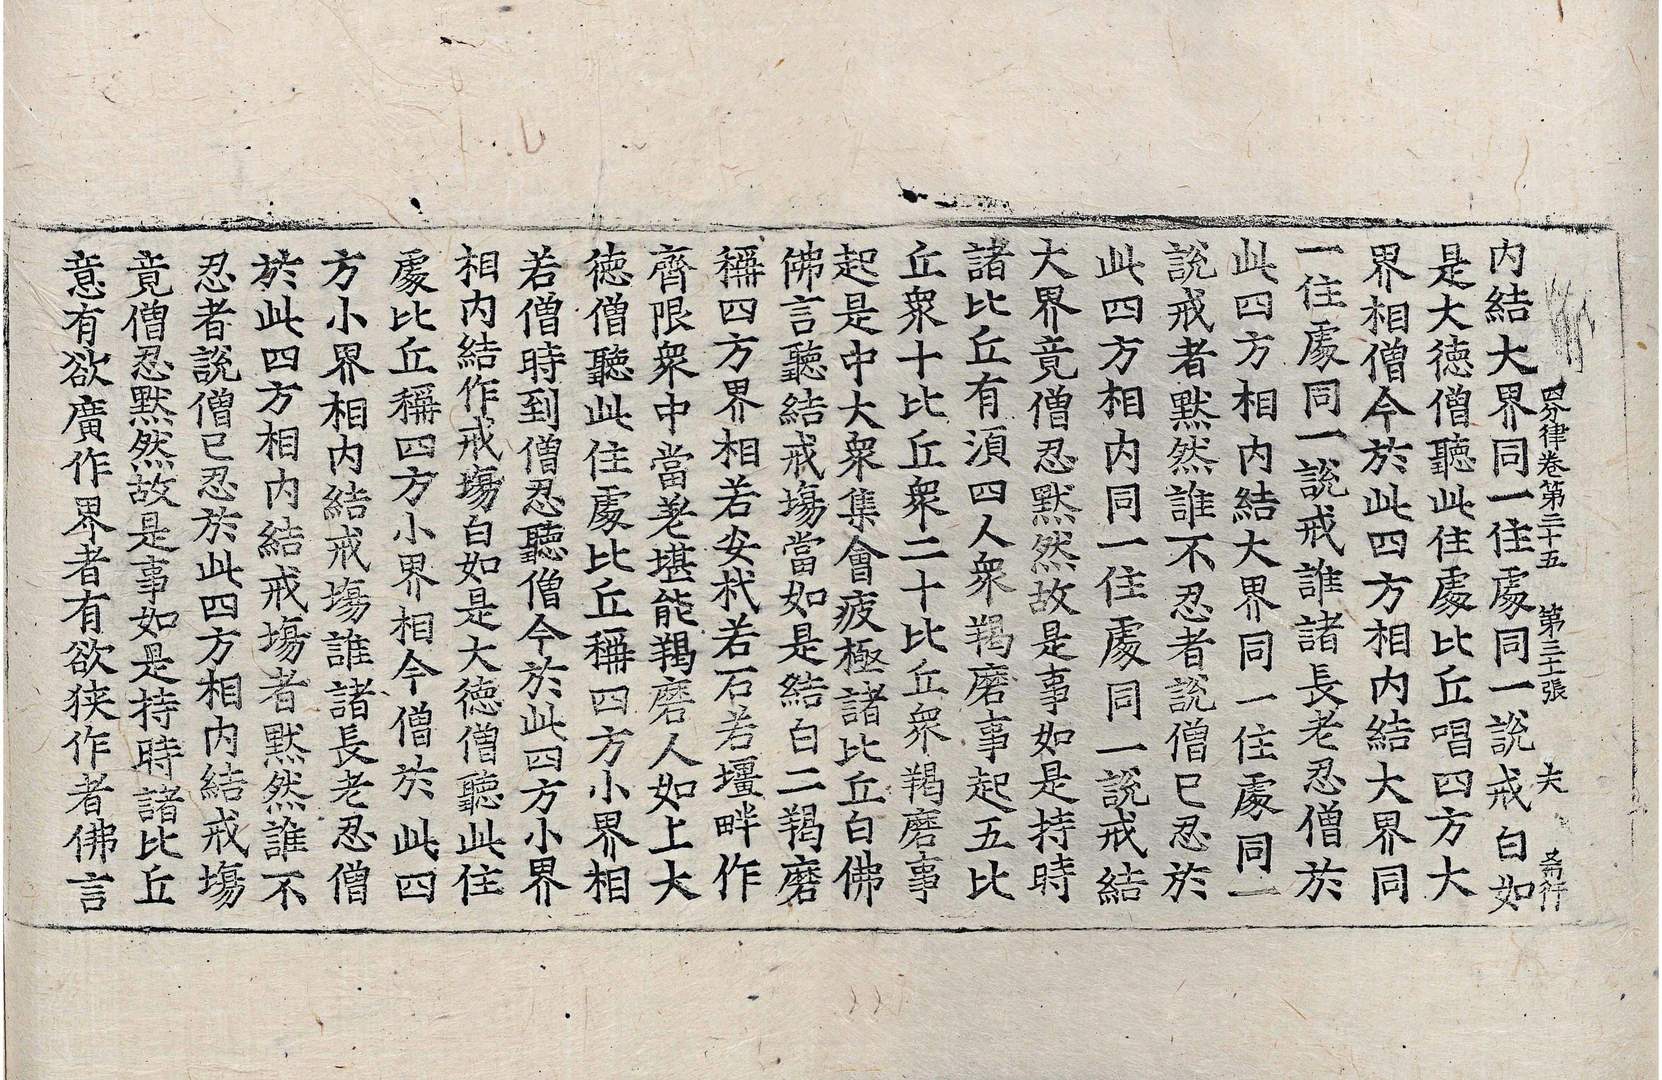 四分律卷第三十五　第三十張　夫
内結大界同一住處同一說戒白如
是大徳僧聽此住處比丘唱四方大
界相僧今於此四方相内結大界同
一住處同一說戒誰諸長老忍僧於
此四方相内結大界同一住處同一
說戒者默然誰不忍者說僧已忍於
此四方相内同一住處同一說戒結
大界竟僧忍默然故是事如是持時
諸比丘有湏四人衆羯磨事起五比
丘衆十比丘衆二十比丘衆羯磨事
起是中大衆集會疲極諸比丘白佛
佛言聽結戒塲當如是結白二羯磨
稱四方界相若安杙若石若壃畔作
齊限衆中當差堪能羯磨人如上大
徳僧聽此住處比丘稱四方小界相
若僧時到僧忍聽僧今於此四方小界
相内結作戒塲白如是大徳僧聽此住
處比丘稱四方小界相今僧於此四
方小界相内結戒塲誰諸長老忍僧
於此四方相内結戒塲者默然誰不
忍者說僧已忍於此四方相内結戒塲
竟僧忍默然故是事如是持時諸比丘
意有欲廣作界者有欲狹作者佛言